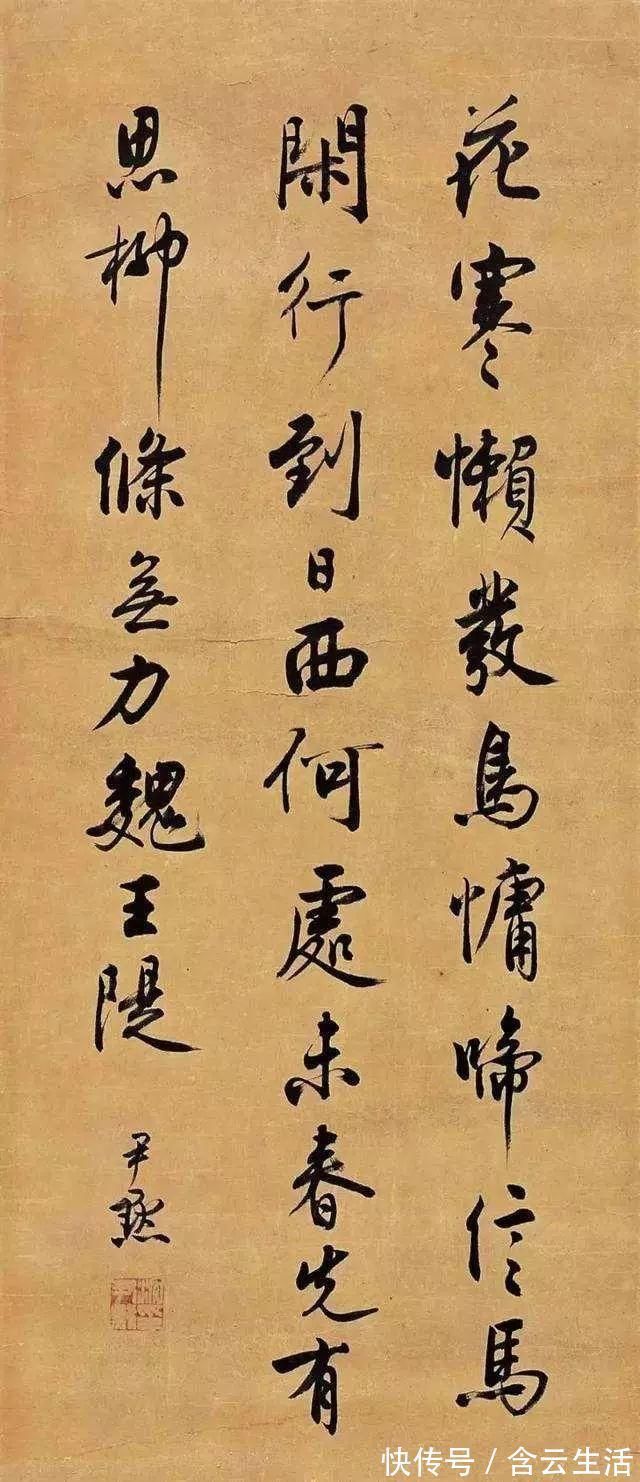 花寒懶發鳥慵啼信馬
閑行到日西何處未春先有
思柳條無力魏王隄
尹默
快传号/含云生活